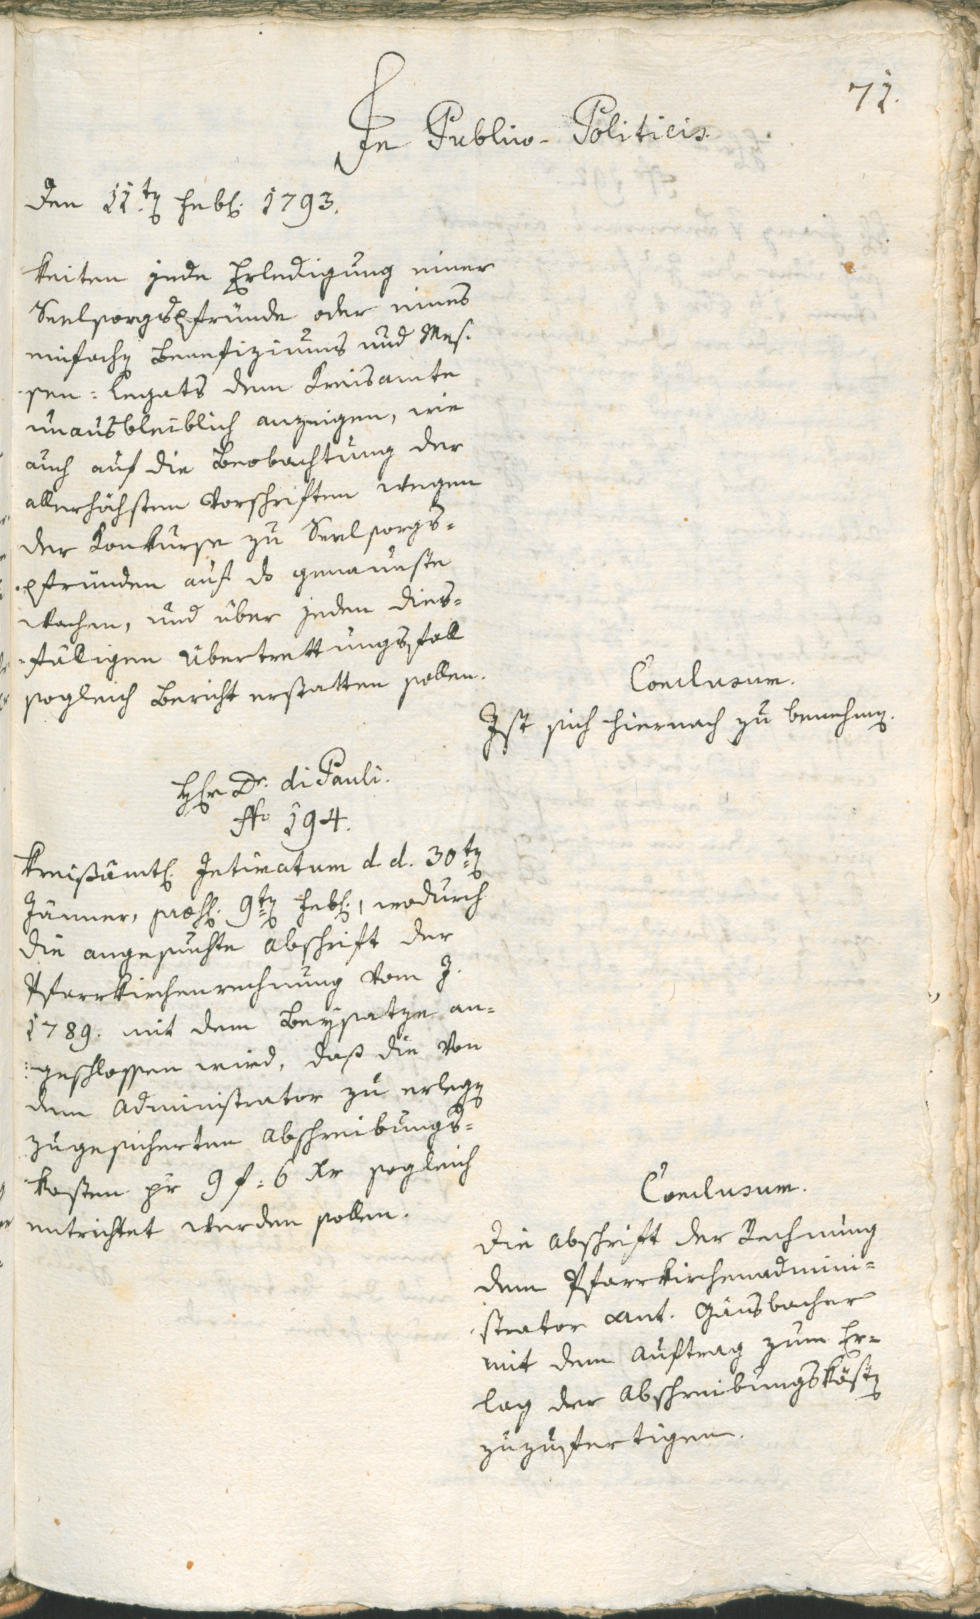 71.
In Publico-Politicis.
den 11.ten Febr. 1793.
keiten jede Erledigung einer
Seelsorgspfründe oder eines
einfachen Benefiziums und Mes-
sen-Legats dem Kreisamte
unausbleiblich anzeigen, wie
auch auf die Beobachtung der
allerhöchsten Vorschriften wegen
der Konkurse zu Seelsorgs-
pfründen auf das genaueste
wachen, und über jeden dies-
fälligen Übertrettungsfall
sogleich Bericht erstatten sollen.
Conclusum.
Ist sich hiernach zu benehmen.
Herr Dr. di Pauli.
No 194.
Kreißämtl. Intimatum d. d. 30ten
Jänner, præs. 9ten Febr., wodurch
die angesuchte Abschrift der
Pfarrkirchenrechnung vom J.
1789. mit dem Beysatze an-
geschlossen wird, daß die von
dem Administrator zu erlegen
zugesicherten Abschreibungs-
kosten pr 9 f. 6 Xr sogleich
entrichtet werden sollen.
Conclusum.
Die Abschrift der Rechnung
dem Pfarrkirchenadmini-
strator Ant. Gänsbacher
mit dem Auftrag zum Er-
lag der Abschreibungskösten
zuzufertigen.